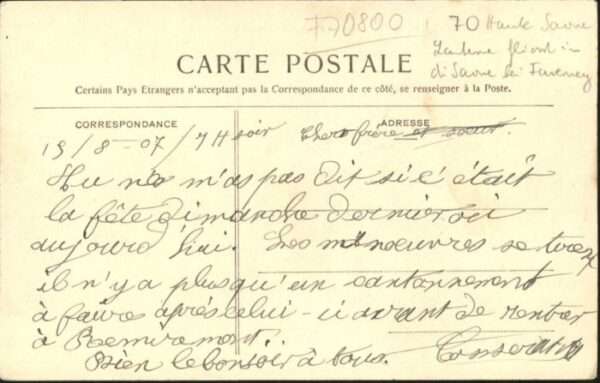 FA0800
70 Haute Saone
CARTE POSTALE
Certains Pays Etrangers n'acceptant pas la Correspondance de ce côté, se renseigner à la Poste.
CORRESPONDANCE
ADRESSE
19/8-07/7H soir
Chers frère et sœur.
Tu n m'as pas dit si c'était
la fête dimanche dernier où
aujourd'hui. Les manœuvres se tirent
il n'y a plus qu'un cantonnement
à faire après celui-ci avant de rentrer
à Remiremont..
Bien le bonsoir à tous.